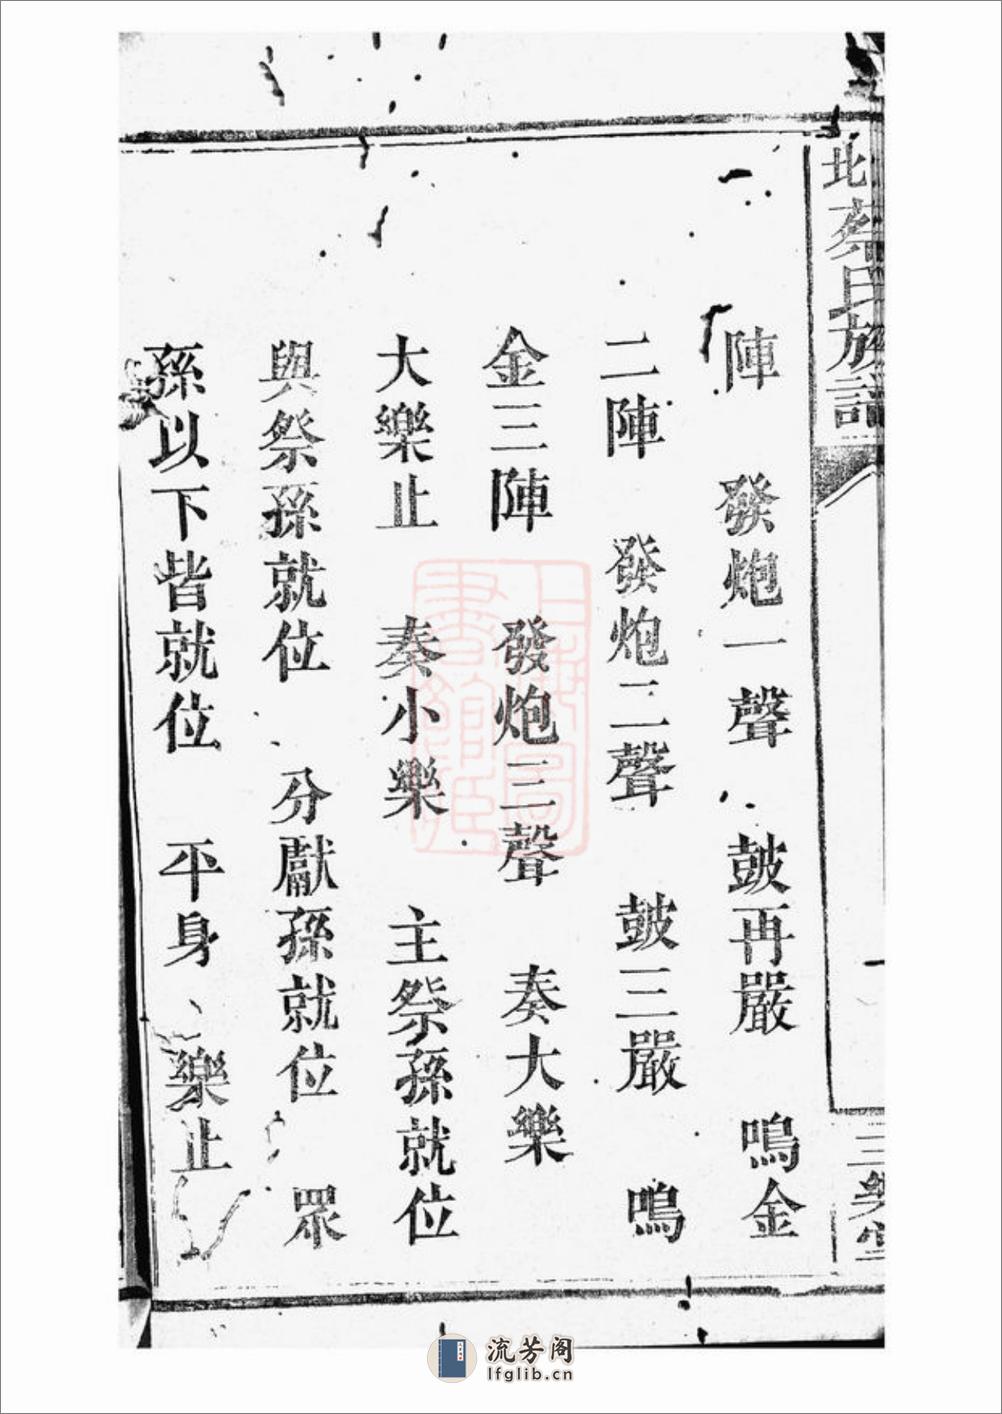 北蔡氏族譜
三樂堂
陣　發炮一聲　鼓再嚴　鳴金
二陣　發炮二聲　鼓三嚴　鳴
金三陣　發炮三聲　奏大樂
大樂止　奏小樂　主祭孫就位
與祭孫就位　分獻孫就位　眾
孫以下皆就位　平身　樂止
上海圖書館藏
流芳阁
lfglib.cn